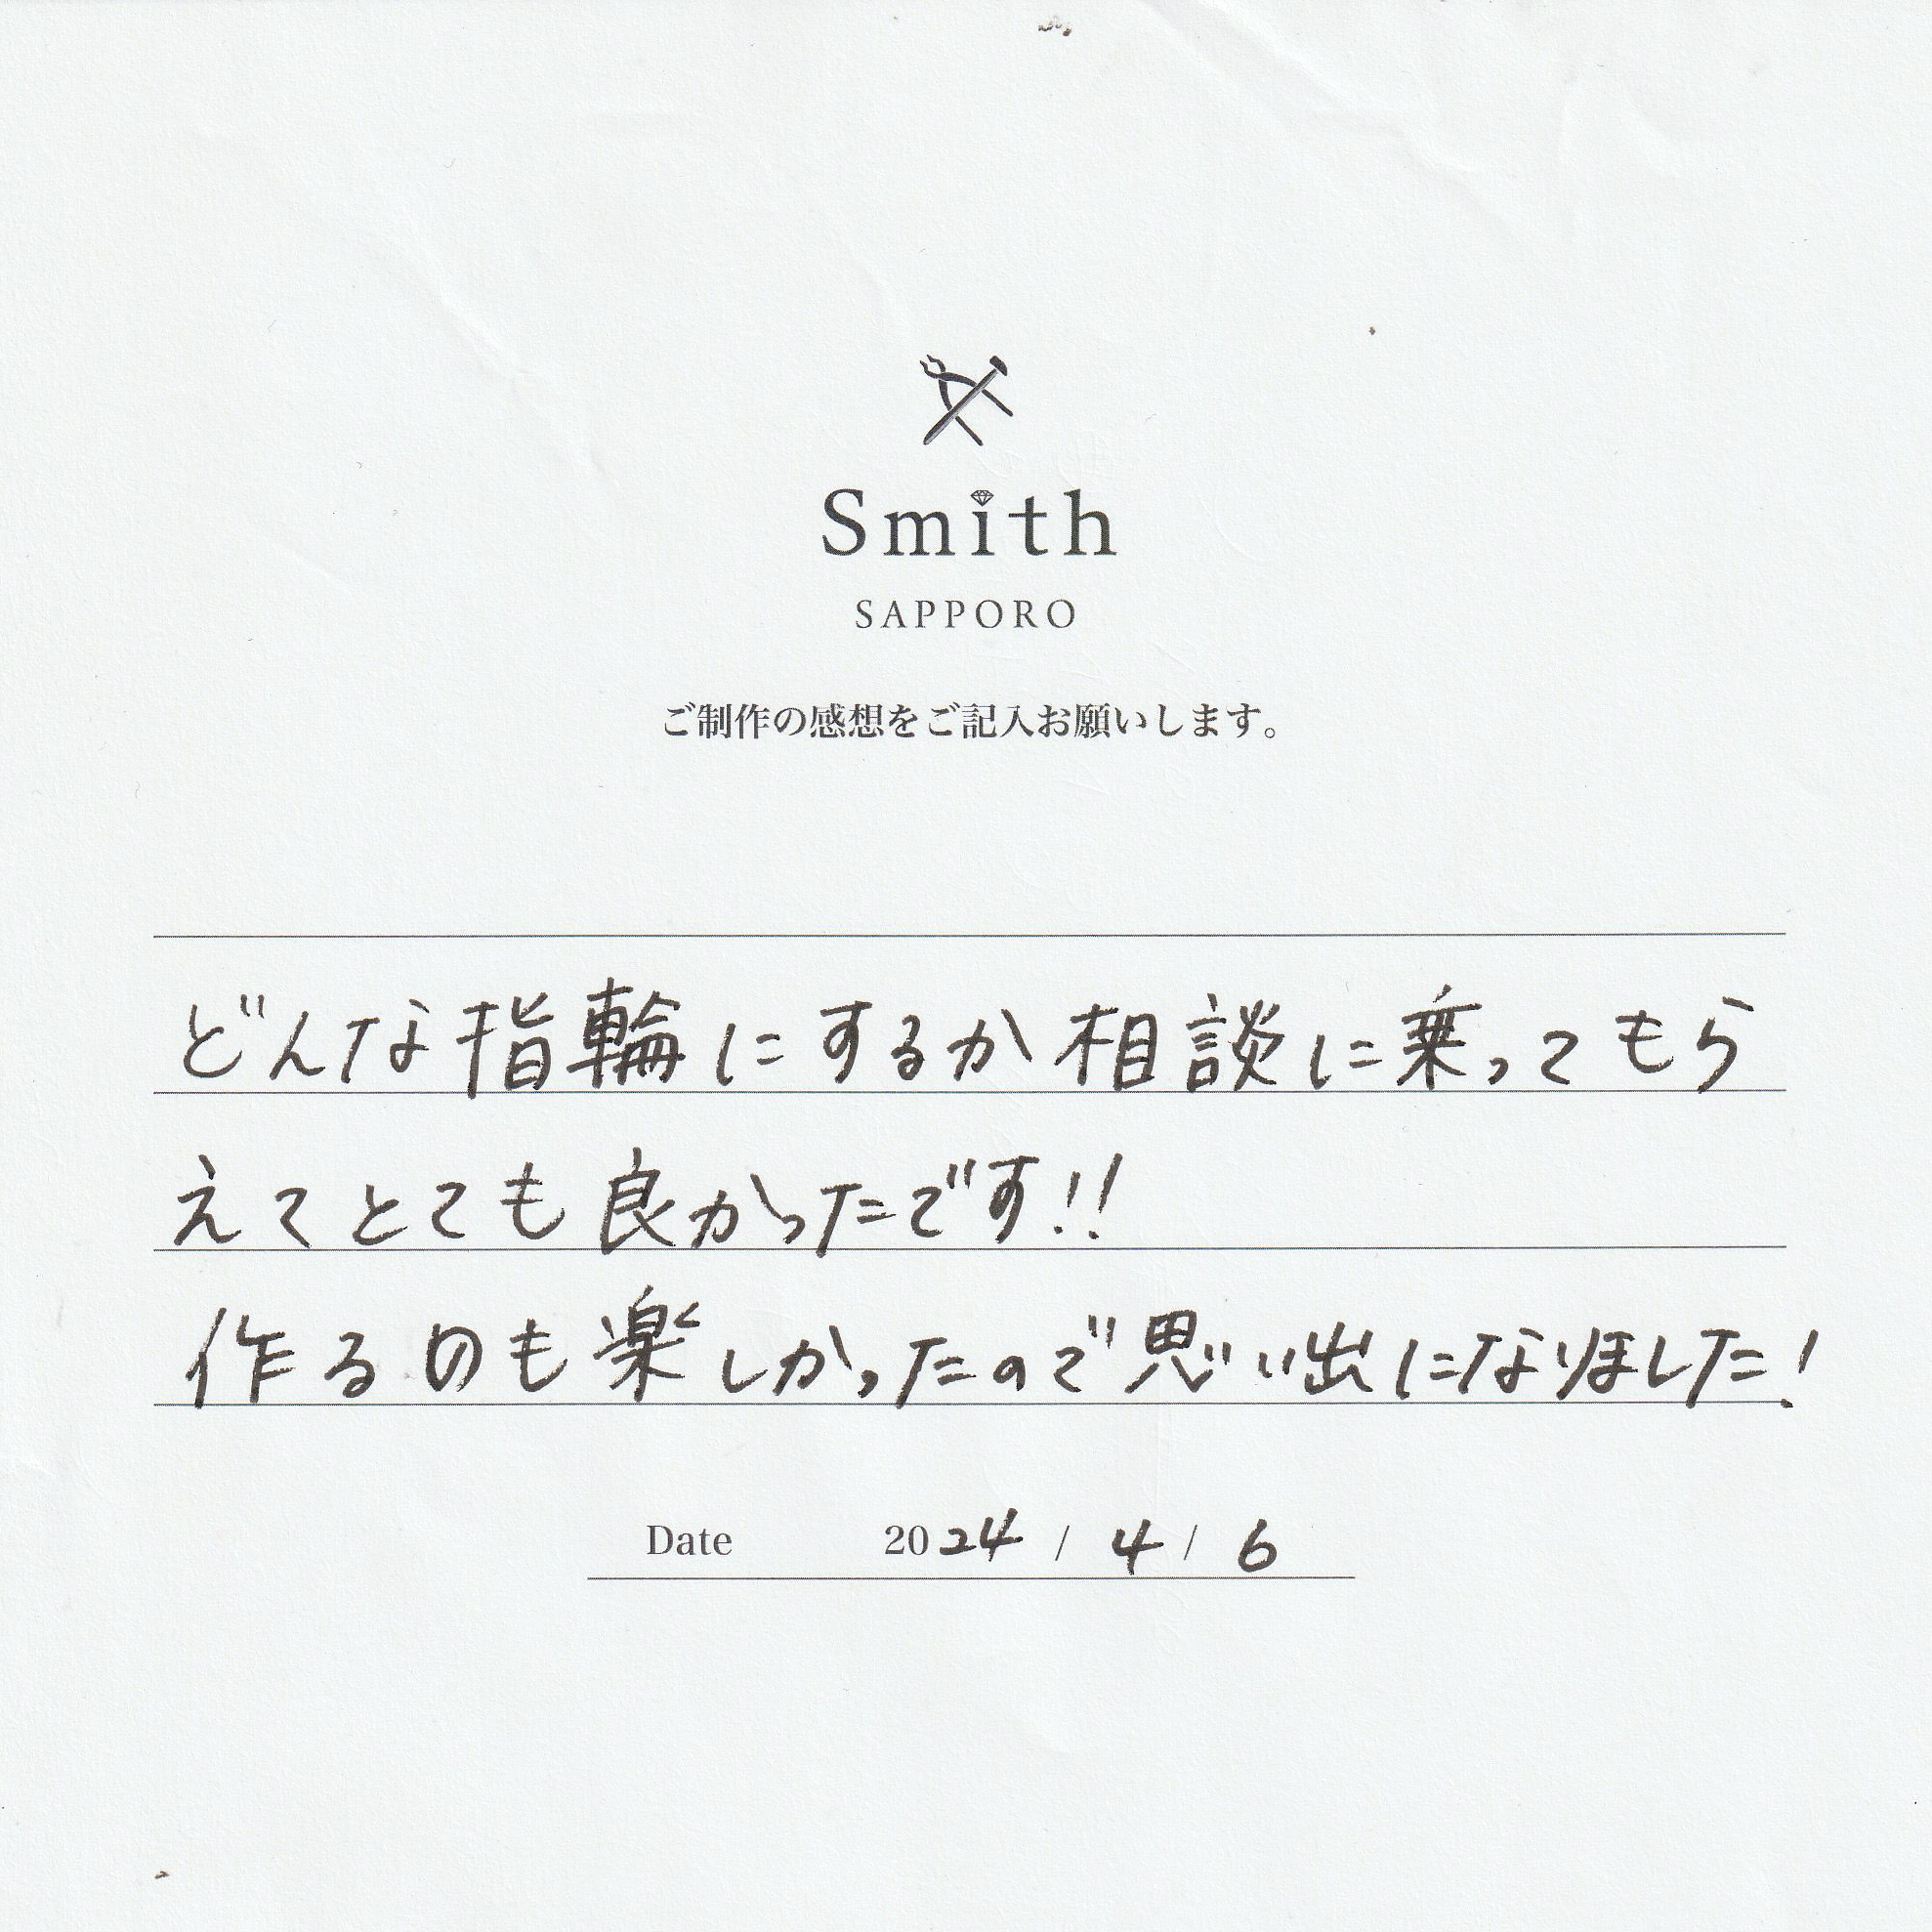 Smith
SAPPORO
ご制作の感想をご記入お願いします。
どんな指輪にするか相談に乗ってもら
えてとても良かったです!!
作るのも楽しかったので思い出になりました!
Date 2024 / 4 / 6